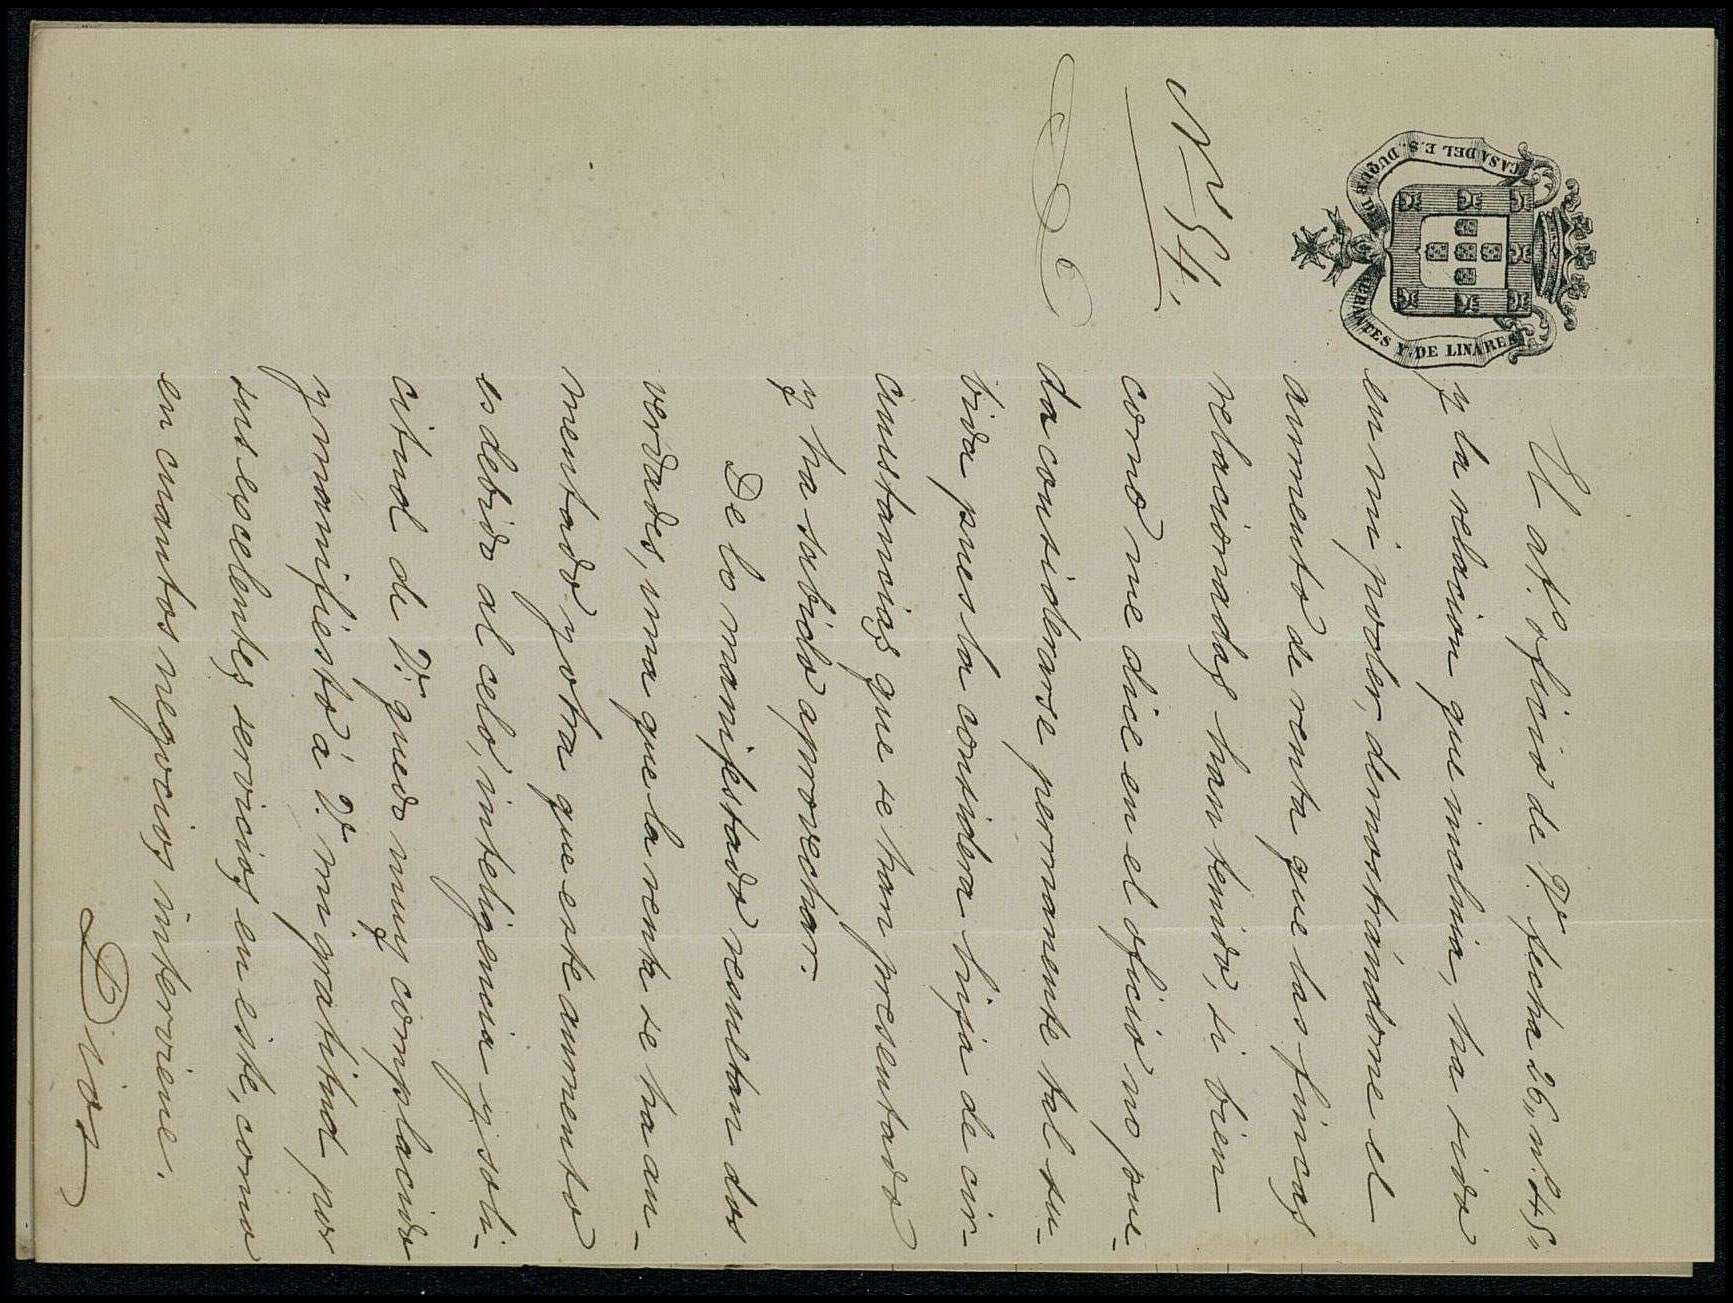 CASA DEL E.S. DUQUE DE ABRANTES Y DE LINARES
N.º 54.
El at.º oficio de V. fecha 26, n.º 48,
y la relacion que incluia, ha sido
en mi poder, demostrándome el
aumento de renta que las fincas
relacionadas han tenido, si bien
como me dice en el oficio no pue-
da considerarse permanente tal su-
bida pues la considera hija de cir-
cunstancias que se han presentado
y ha sabido aprovechar.
De lo manifestado resultan dos
verdades, una que la renta se ha au-
mentado y otra que este aumento
es debido al celo, inteligencia y soli-
citud de V. quedo muy complacido
y manifiesto á V. mi gratitud por
sus escelentes servicios en este, como
en cuantos negocios interviene.
Dios